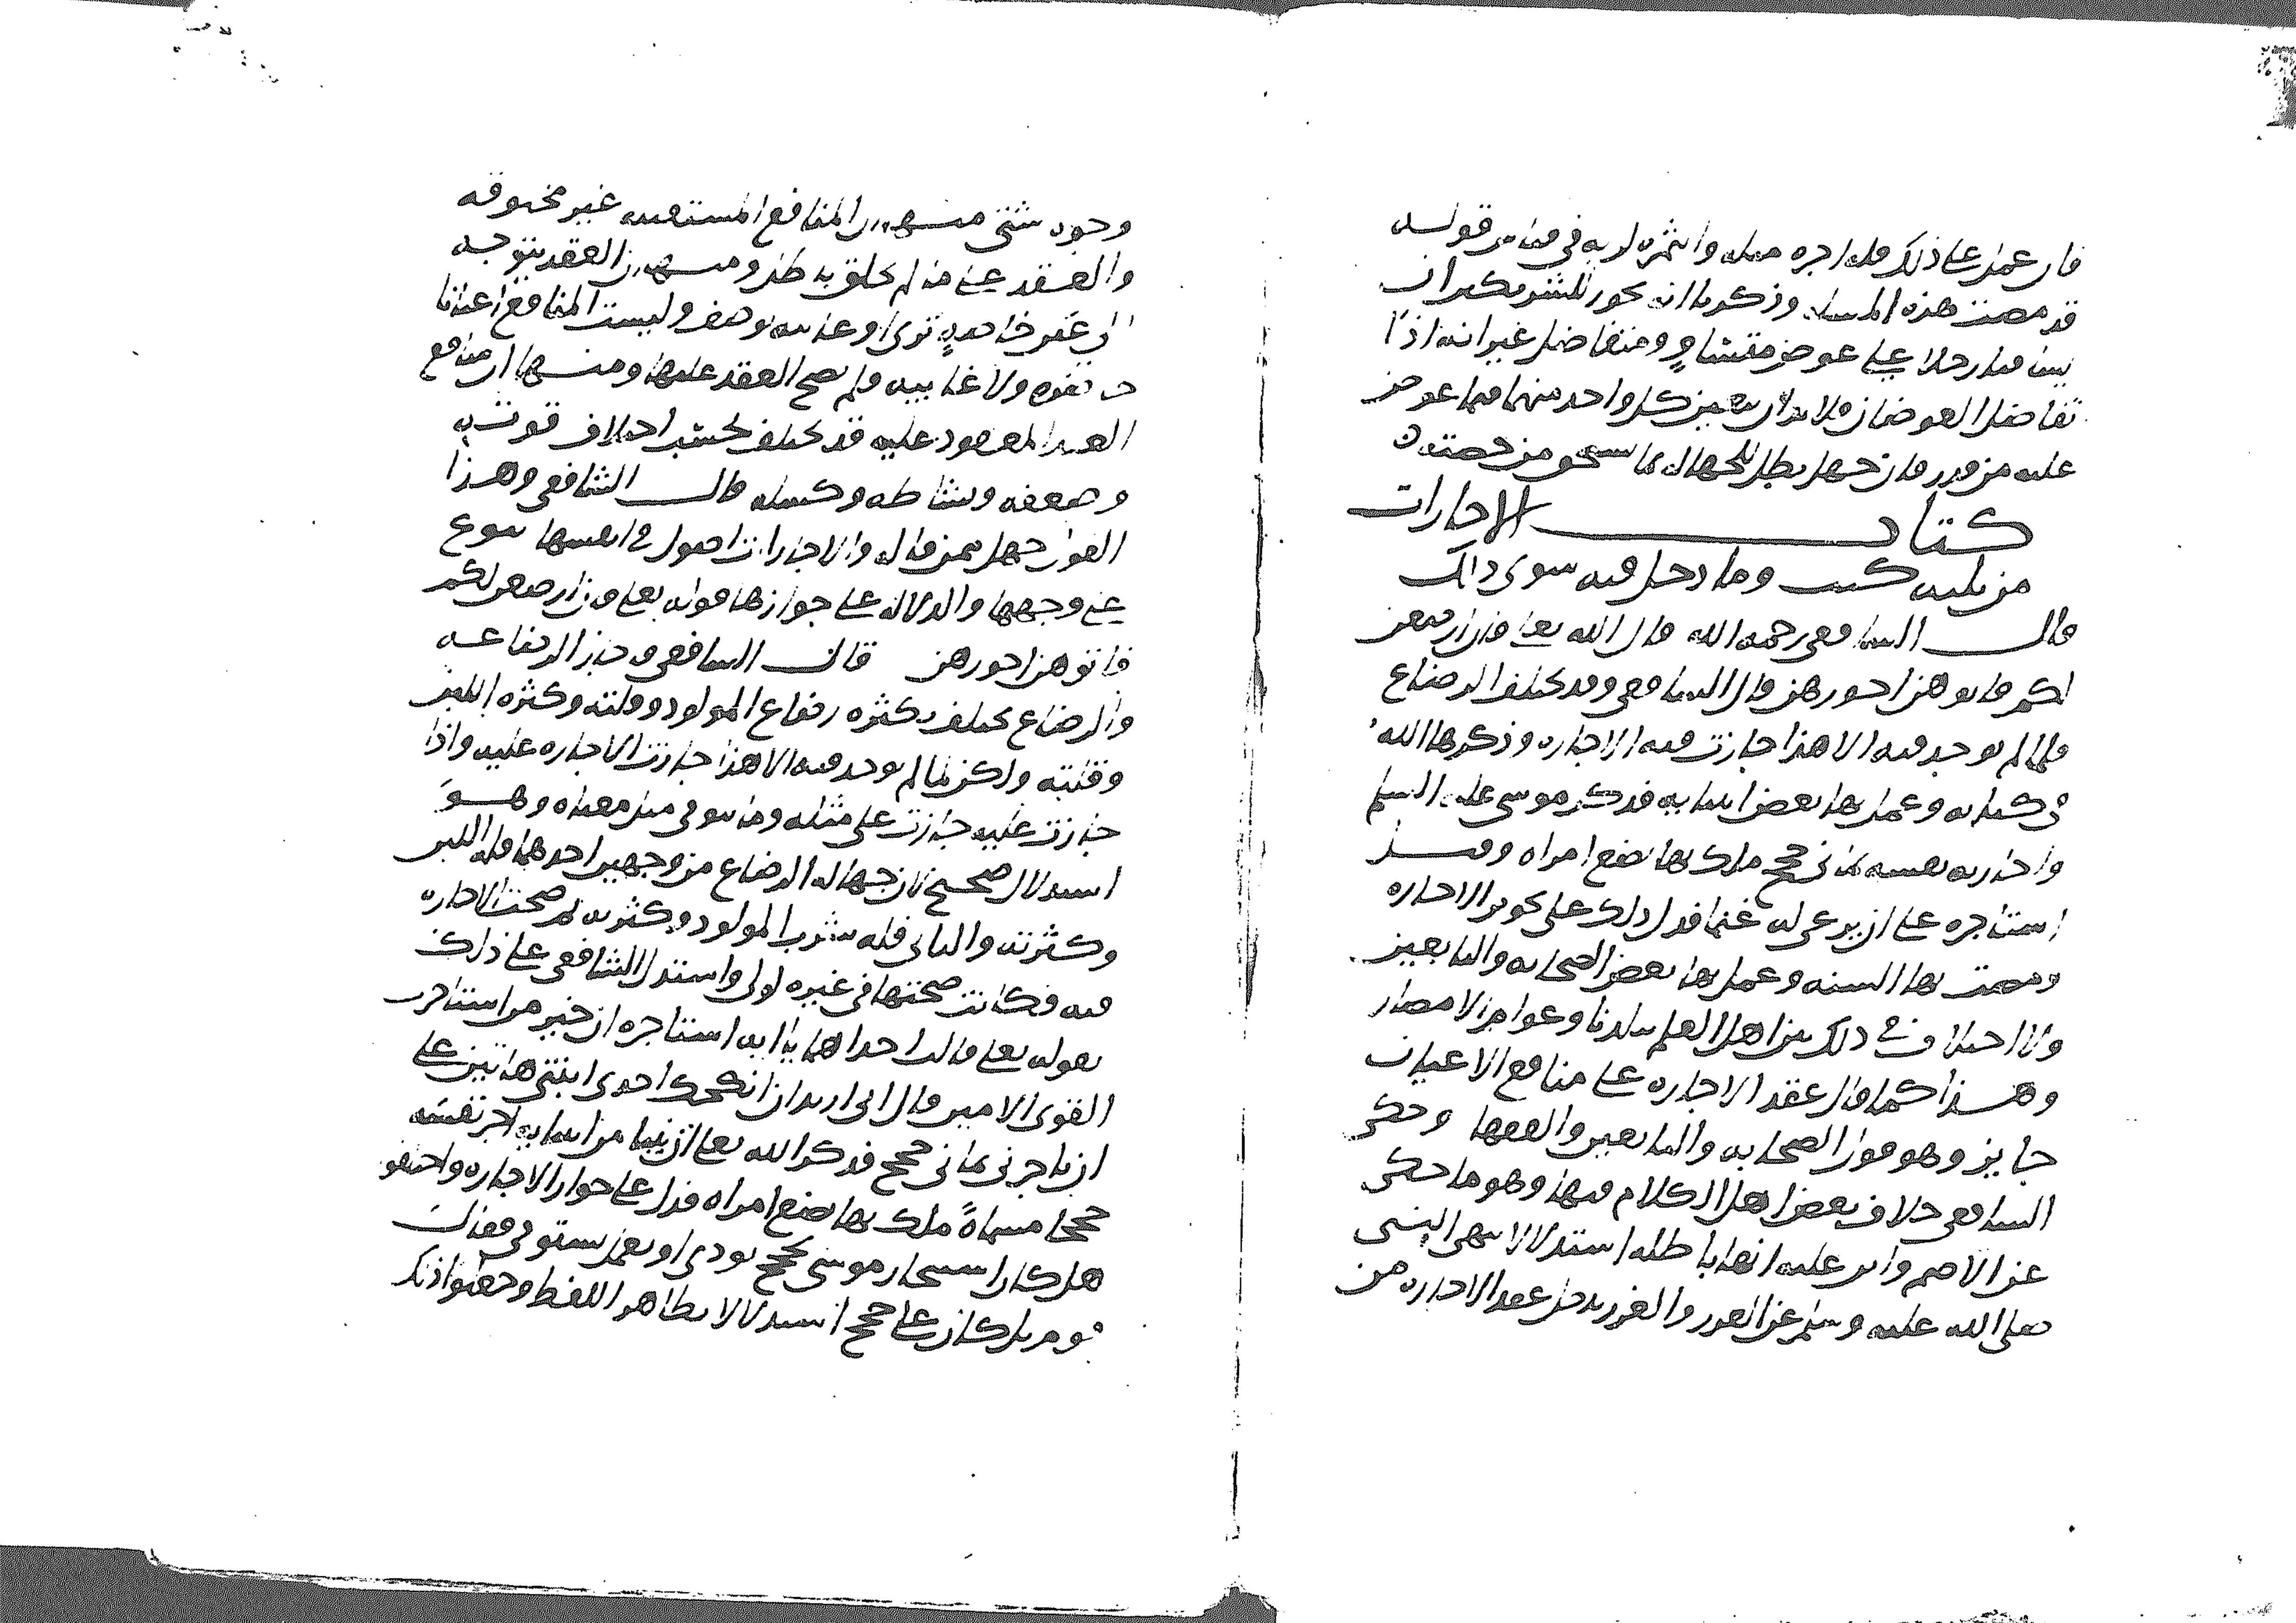 فان عمل على ذلك فله اجره مثله والثمره لربه في قياس قوله
قد مضت هذه المسله وذكرنا انه يجوز للشريكين ان
يساقيا رجلا على عوض متساو ومتفاضل غير انه اذا
تفاضل العوضان فلا بد ان يتميز كل واحد منهما فيما عوض
عليه من قدر فان جهل بطل للجهاله بما يستحق من حصته
كتاب الاجارات
من ثلاثة كتب وما دخل فيه سوى ذلك
قال الشافعي رحمه الله قال الله تعالى فان ارضعن
لكم فاتوهن اجورهن قال الشافعي وقد يختلف الرضاع
فلما لم يوجد فيه الا هذا جازت فيه الاجاره وذكرها الله
في كتابه وعمل بها بعض انبيايه فذكر موسى عليه السلم
واجارته نفسه ثماني حجج ملك بها بضع امراه وقيل
استاجره على ان يرعى له غنما فدل ذلك على تجويز الاجاره
ومضت بها السنه وعمل بها بعض الصحابه والتابعين
ولا اختلاف في ذلك بين اهل العلم ببلدنا وعوام الامصار
وهذا كما قال عقد الاجاره على منافع الاعيان
جايز وهو قول الصحابه والتابعين والفقها وحكى
الشافعي خلاف بعض اهل الكلام فيها وهو ما حكى
عن الاصم وابن عليه انها باطله استدلالا بنهي النبي
صلى الله عليه وسلم عن الغرر والغرر يدخل عقد الاجاره من
وجوه شتى منها ان المنافع المستقبله غير مخلوقه
والعقد على ما لم يخلق باطل ومنها ان العقد يتوجه
الى عين حاضره ترى او غايبه توصف وليست المنافع اعيانا
حاضره ولا غايبه ولم يصح العقد عليها ومنها ان منافع
العبد المعقود عليه قد تختلف بحسب اختلاف قوته
وضعفه ونشاطه وكسله قال الشافعي وهذا
القول جهل ممن قاله والاجارات اصول في انفسها بيوع
على وجهها والدلاله على جوازها قوله تعالى فان ارضعن لكم
فاتوهن اجورهن قال الشافعي فاجاز الرضاعه
والرضاع يختلف بكثره رضاع المولود وقلته وكثره اللبن
وقلته ولكن لما لم يوجد فيه الا هذا جازت الاجاره عليه واذا
جازت عليه جازت على مثله وما هو في مثل معناه وهو
استدلال صحيح لان جهاله الرضاع من وجهين احدهما قله اللبن
وكثرته والثاني قله شرب المولود وكثرته ثم صحت الاجاره
فيه فكانت صحتها في غيره اولى واستدل الشافعي على ذلك
بقوله تعالى قالت احداهما يا ابه استاجره ان خير من استاجرت
القوي الامين قال اني اريد ان انكحك احدى ابنتي هاتين على
ان تاجرني ثماني حجج فذكر الله تعالى ان نبيا من انبيايه اجر نفسه
حججا مسماة ملك بها بضع امراه فدل على جواز الاجاره واختلفو
هل كان استيجار موسى لحجج يودي او بعمل يستوفى فقالت
قوم بل كان على حجج استدلالا بظاهر اللفظ وجعلوا ذلك